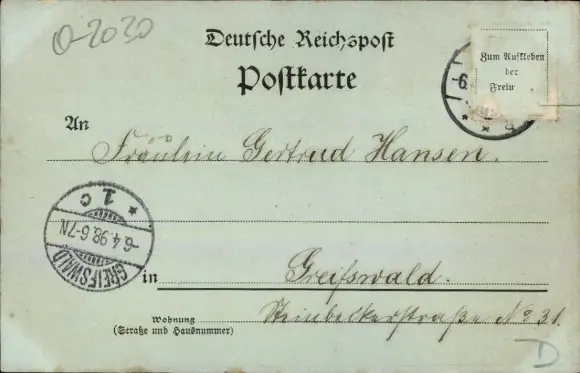 0-2030
Deutsche Reichspost
Postkarte
Zum Aufkleben
der
Freim
6
An
Fräulein Gertrud Hansen.
GREIFSWALD
-6.4.98.6-7N.
* 1 c
in Greifswald.
Wohnung
(Straße und Hausnummer)
Steinbeckerstraße No 31.
D